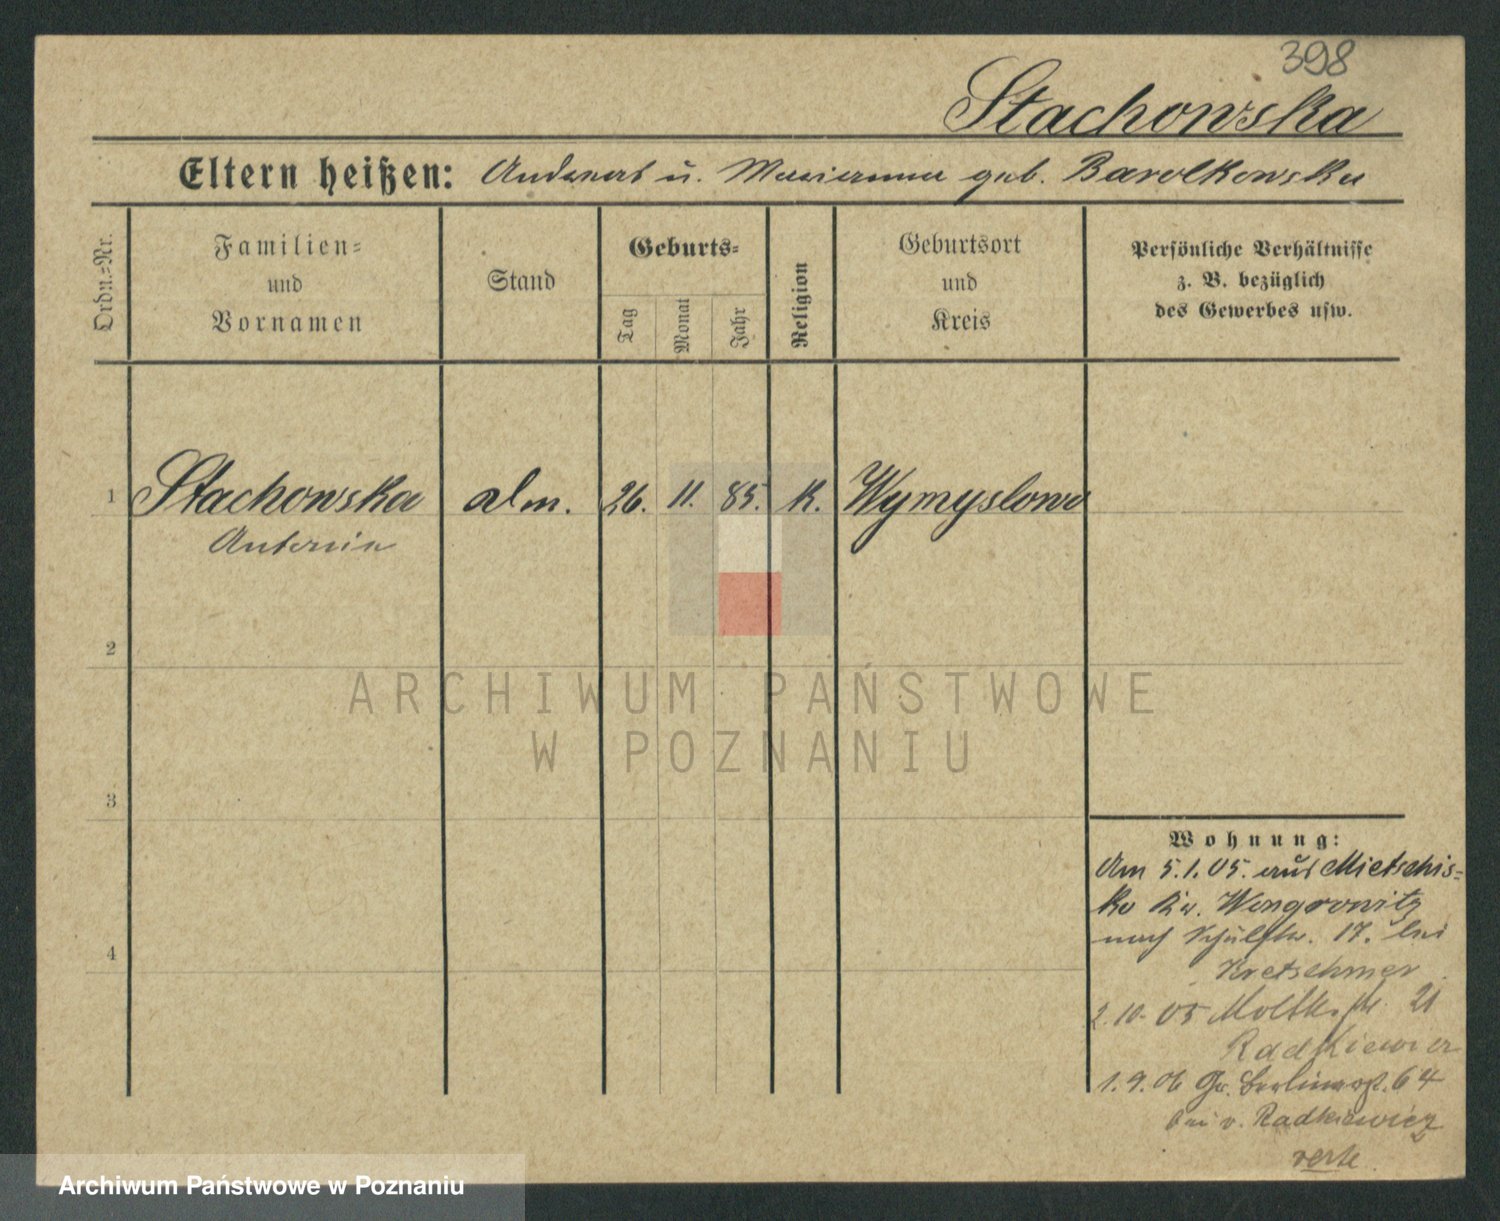 398
Stachowska
Eltern heißen: Andreas u. Marianna geb. Barolkowska
Ordn.=Nr.
Familien=
und
Vornamen
Stand
Geburts=
Tag
Monat
Jahr
Religion
Geburtsort
und
Kreis
Persönliche Verhältnisse
z. B. bezüglich
des Gewerbes usw.
1 Stachowska 26. 11. 85. K. Wymyslowo
Antonie
2
ARCHIWUM PAŃSTWOWE
W POZNANIU
3
Wohnung:
Am 5.1.05. aus Mietschis=
ko Kr. Wongrowitz
nach Schulstr. 17. bei
Kretschmer
4
2.10.05 Moltkestr. 21
Radkiewicz
1.9.06 Gr. Berlinerst. 64
bei v. Radkiewicz
Archiwum Państwowe w Poznaniu